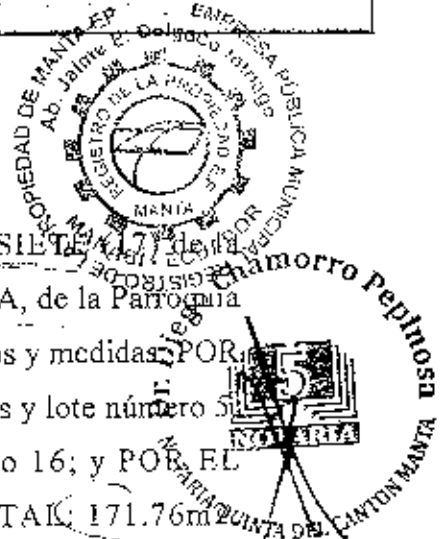 EMPRESA PÚBLICA MUNICIPAL
REGISTRO DE LA PROPIEDAD DE MANTA-EP
Ab. Jaime E. Delgado Intriago
REGISTRO DE LA PROPIEDAD E.P.
MANTA
SIETE (17) de la
A, de la Parroquia
s y medidas: POR
s y lote número 5
o 16; y POR EL
TAL: 171.76m2
Dr. Diego Chamorro Pepinosa
5
NOTARIA
NOTARIA QUINTA DEL CANTON MANTA